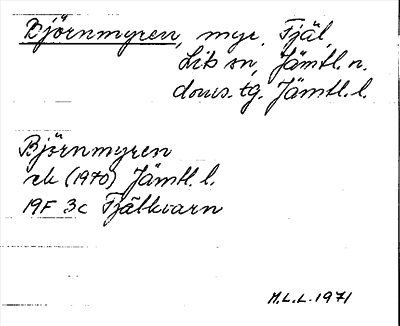 Björnmyren, myr, Fjäl,
Lits sn, Jämtl. n.
doms.tg. Jämtl. l.
Björnmyren
ek (1970) Jämtl. l.
19F 3c Fjälkvarn
M.L.L. 1971